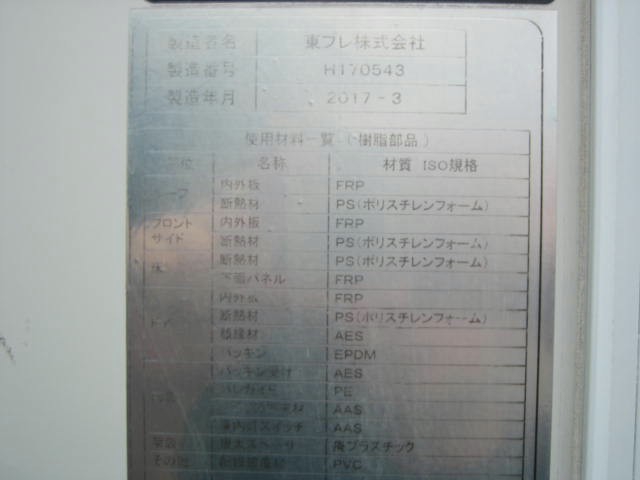 製造者名 東プレ株式会社
製造番号 H170543
製造年月 2017-3
使用材料一覧 (樹脂部品)
部位 名称 材質 ISO規格
ルーフ 内外板 FRP
断熱材 PS(ポリスチレンフォーム)
フロント 内外板 FRP
サイド 断熱材 PS(ポリスチレンフォーム)
床 断熱材 PS(ポリスチレンフォーム)
下面パネル FRP
内外板 FRP
ドア 断熱材 PS(ポリスチレンフォーム)
AES
パッキン EPDM
パッキン受け AES
PE
AAS
庫内灯スイッチ AAS
廃プラスチック
その他 PVC